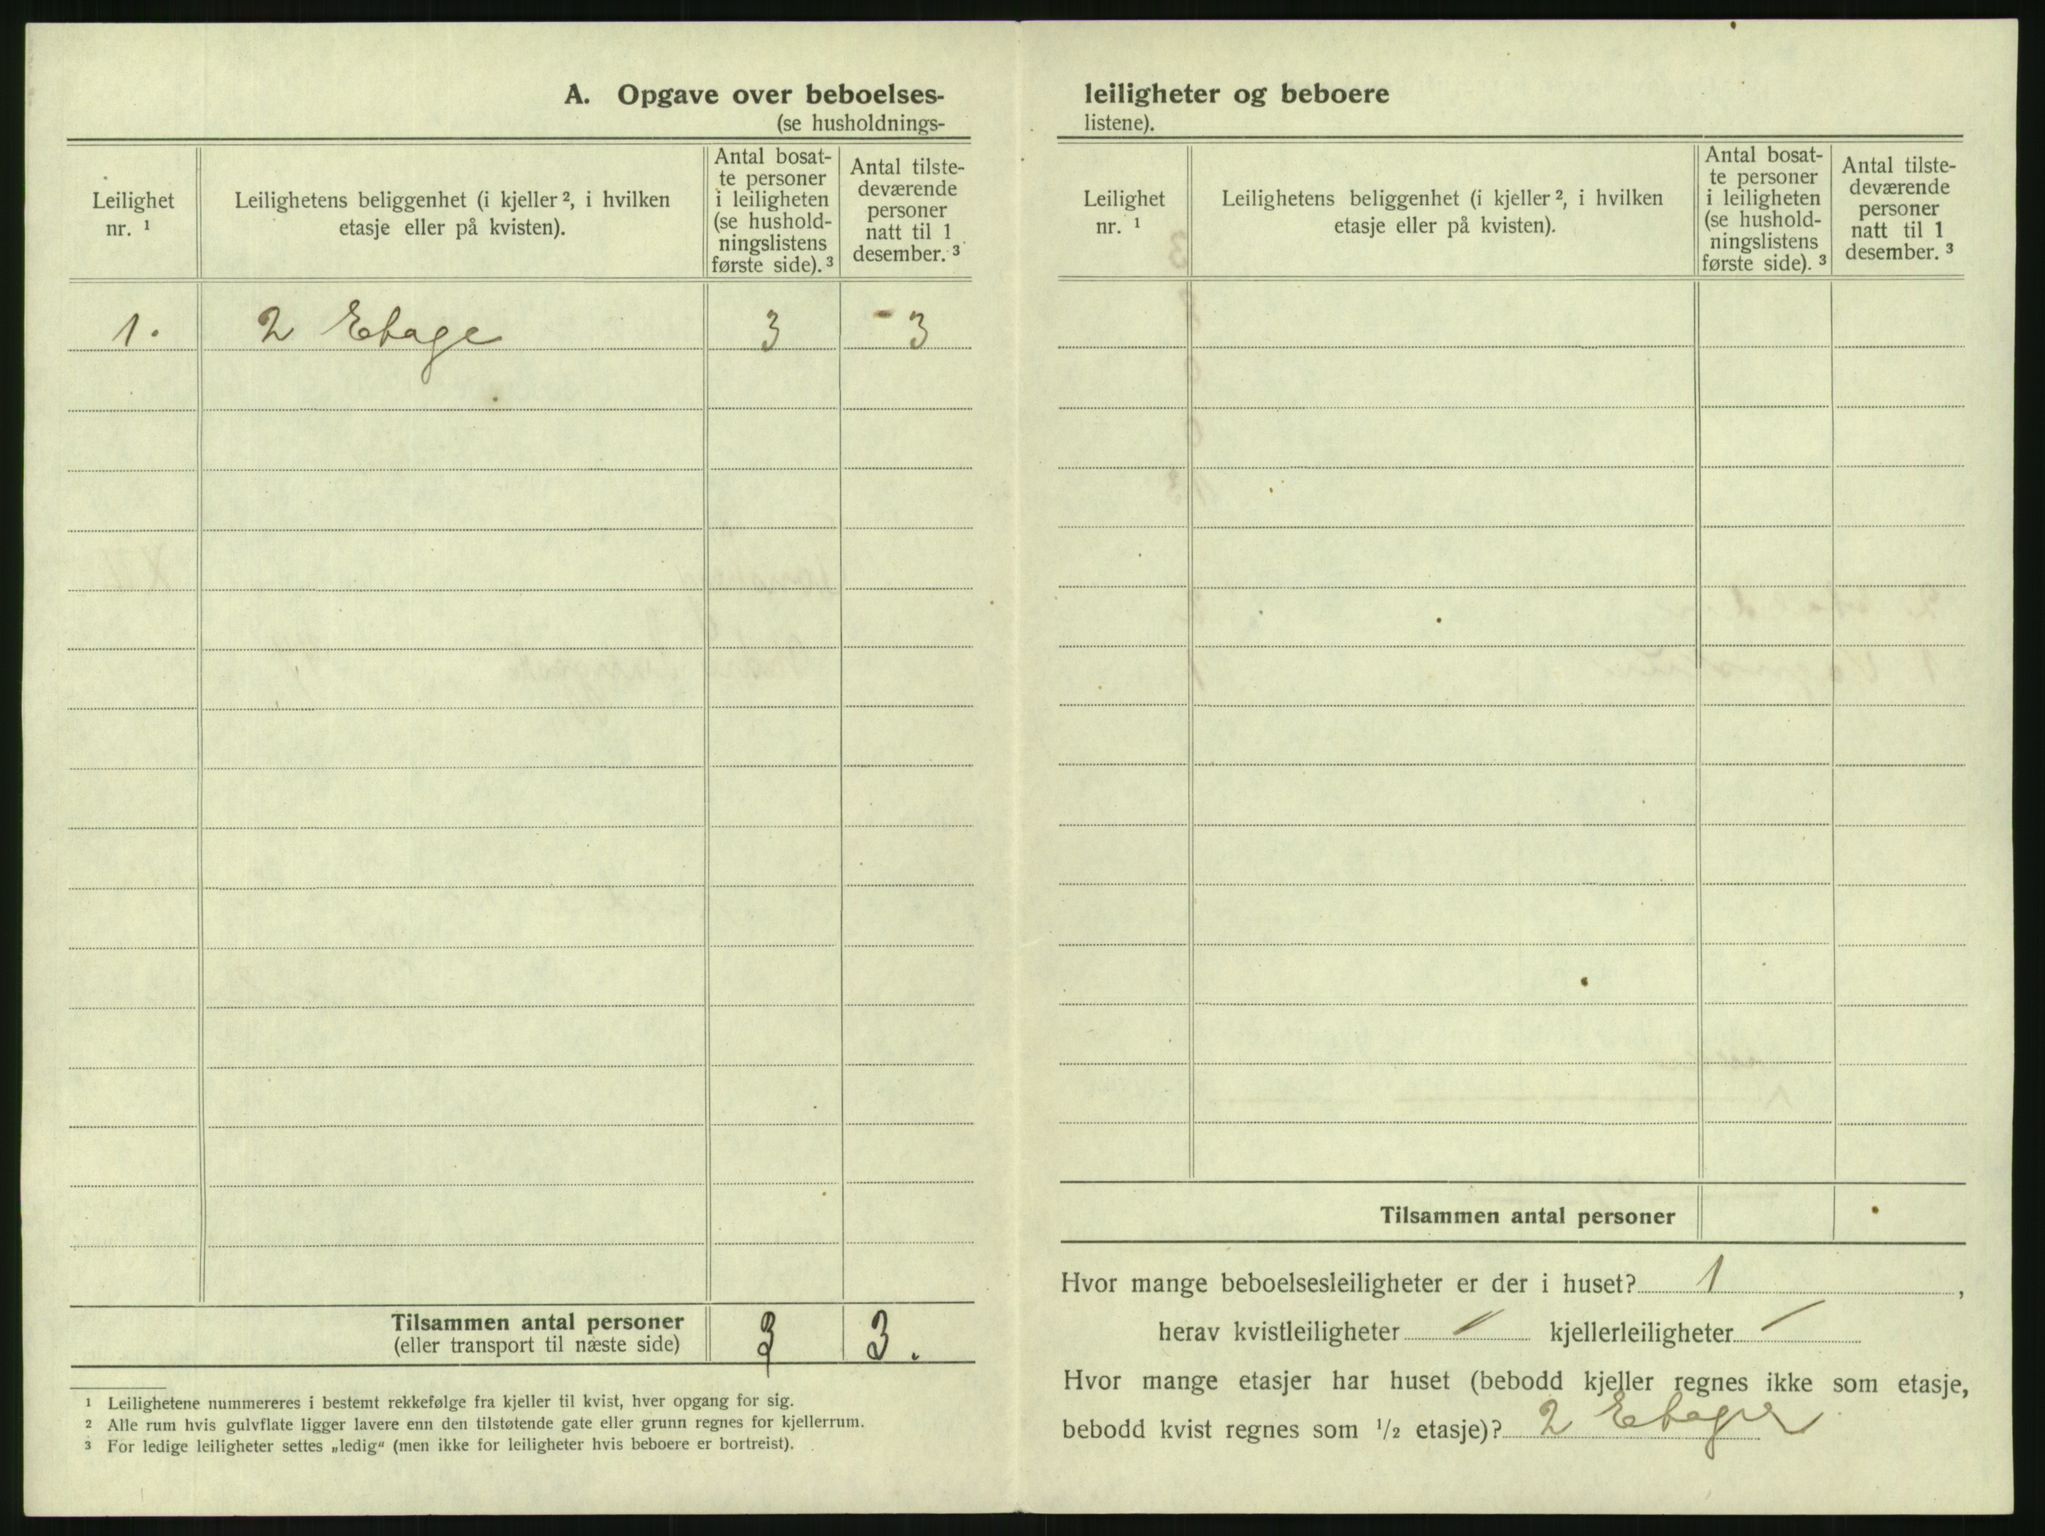 A. Opgave over beboelses-
(se husholdnings-
Leilighet
nr. ¹
Leilighetens beliggenhet (i kjeller ², i hvilken
etasje eller på kvisten).
Antal bosat-
te personer
i leiligheten
(se hushold-
ningslistens
første side). ³
Antal tilste-
deværende
personer
natt til 1
desember. ³
1. 2 Etage 3 3
Tilsammen antal personer 3 3.
(eller transport til næste side)
¹ Leilighetene nummereres i bestemt rekkefølge fra kjeller til kvist, hver opgang for sig.
² Alle rum hvis gulvflate ligger lavere enn den tilstøtende gate eller grunn regnes for kjellerrum.
³ For ledige leiligheter settes „ledig“ (men ikke for leiligheter hvis beboere er bortreist).
leiligheter og beboere
listene).
Leilighet
nr. ¹
Leilighetens beliggenhet (i kjeller ², i hvilken
etasje eller på kvisten).
Antal bosat-
te personer
i leiligheten
(se hushold-
ningslistens
første side). ³
Antal tilste-
deværende
personer
natt til 1
desember. ³
Tilsammen antal personer
Hvor mange beboelsesleiligheter er der i huset? 1 ,
herav kvistleiligheter – kjellerleiligheter –
Hvor mange etasjer har huset (bebodd kjeller regnes ikke som etasje,
bebodd kvist regnes som ¹/₂ etasje)? 2 Etager